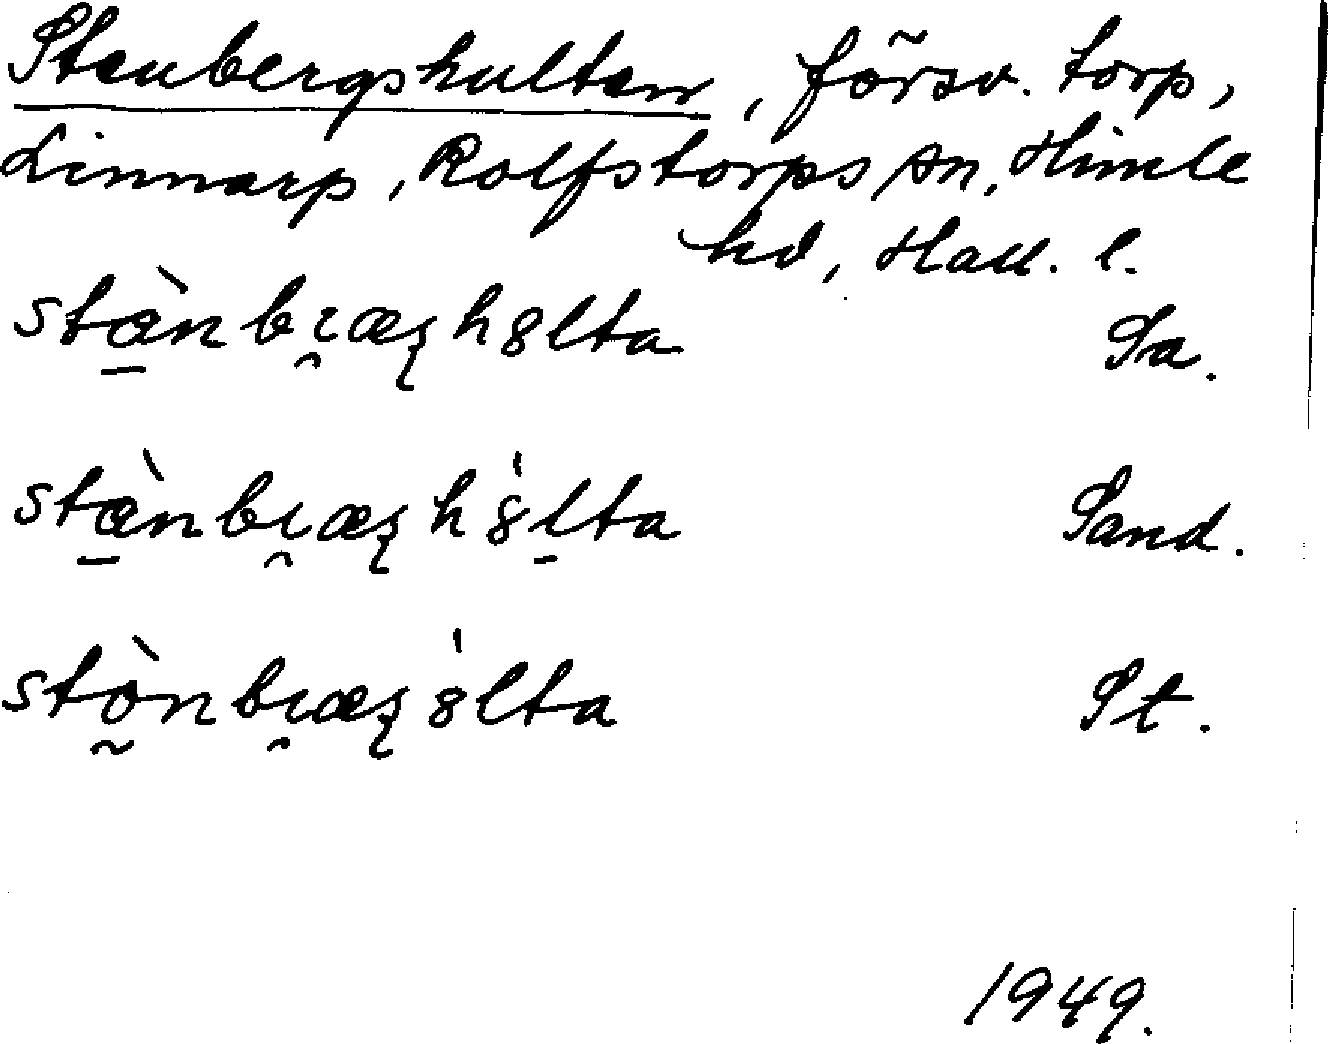 Stenbergshulten, försv. torp,
Linnarp, Rolfstorps sn, Himle
hd, Hall. l.
stæ̠̀nbɩ̯æʂh8lta Sa.
stæ̠̀nbɩ̯æʂh8̀l̠ta Sand.
stò̰nbɩ̯æʂ8̀lta St.
1949.